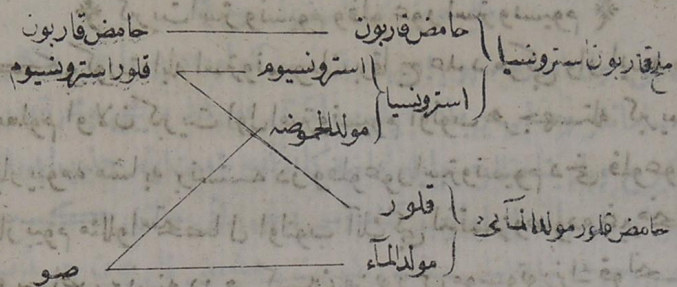 ملح قاربون سترونسیا حامض قاربون حامض قاربون
استرونسیا استرونسیوم قلور استرونسیوم
مولد الحموضه
حامض قلور مولد المآئی قلور
مولد المآء صو